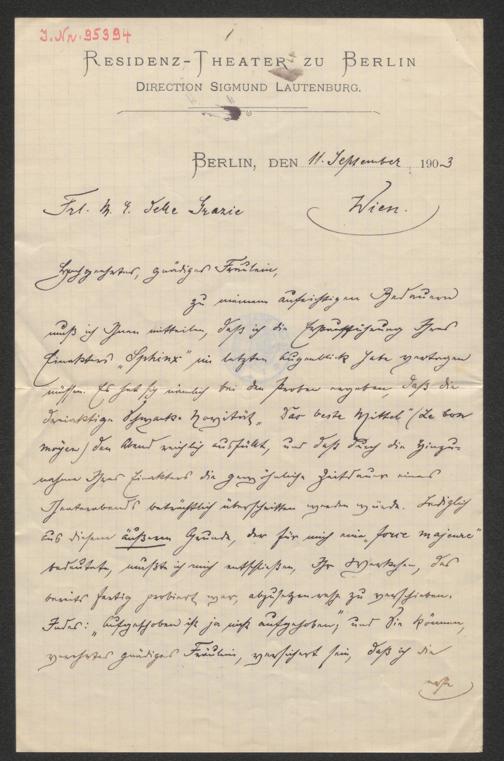 J.Nr. 95394
1
RESIDENZ-THEATER ZU BERLIN
DIRECTION SIGMUND LAUTENBURG.
BERLIN, DEN 11. September 1903
Frl. M. E. delle Grazie
Wien.
Hochgeehrtes, gnädiges Fräulein,
zu meinem aufrichtigen Bedauern
muß ich Ihnen mitteilen, daß ich die Erstaufführung Ihres
Einakters „Sphinx" im letzten Augenblick habe vertagen
müssen. Es hat sich nämlich bei den Proben ergeben, daß die
dreiaktige Schwank-Novität „Das beste Mittel" (Le bon
moyen) den Abend reichlich ausfüllt, und daß durch die Hinzu-
nahme Ihres Einakters die gewöhnliche Zeitdauer eines
Theaterabends beträchtlich überschritten werden würde. Lediglich
aus diesem äußeren Grunde, der für mich eine „force majeure"
bedeutete, mußte ich mich entschließen, Ihr Werkchen, das
bereits fertig probiert war, abzusetzen resp. zu verschieben.
Indes: „Aufgeschoben ist ja nicht aufgehoben", und Sie können,
verehrtes gnädiges Fräulein, versichert sein, daß ich die
erste